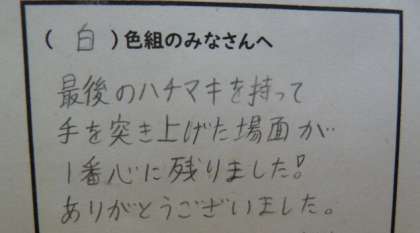 (白)色組のみなさんへ
最後のハチマキを持って
手を突き上げた場面が
1番心に残りました!
ありがとうございました。